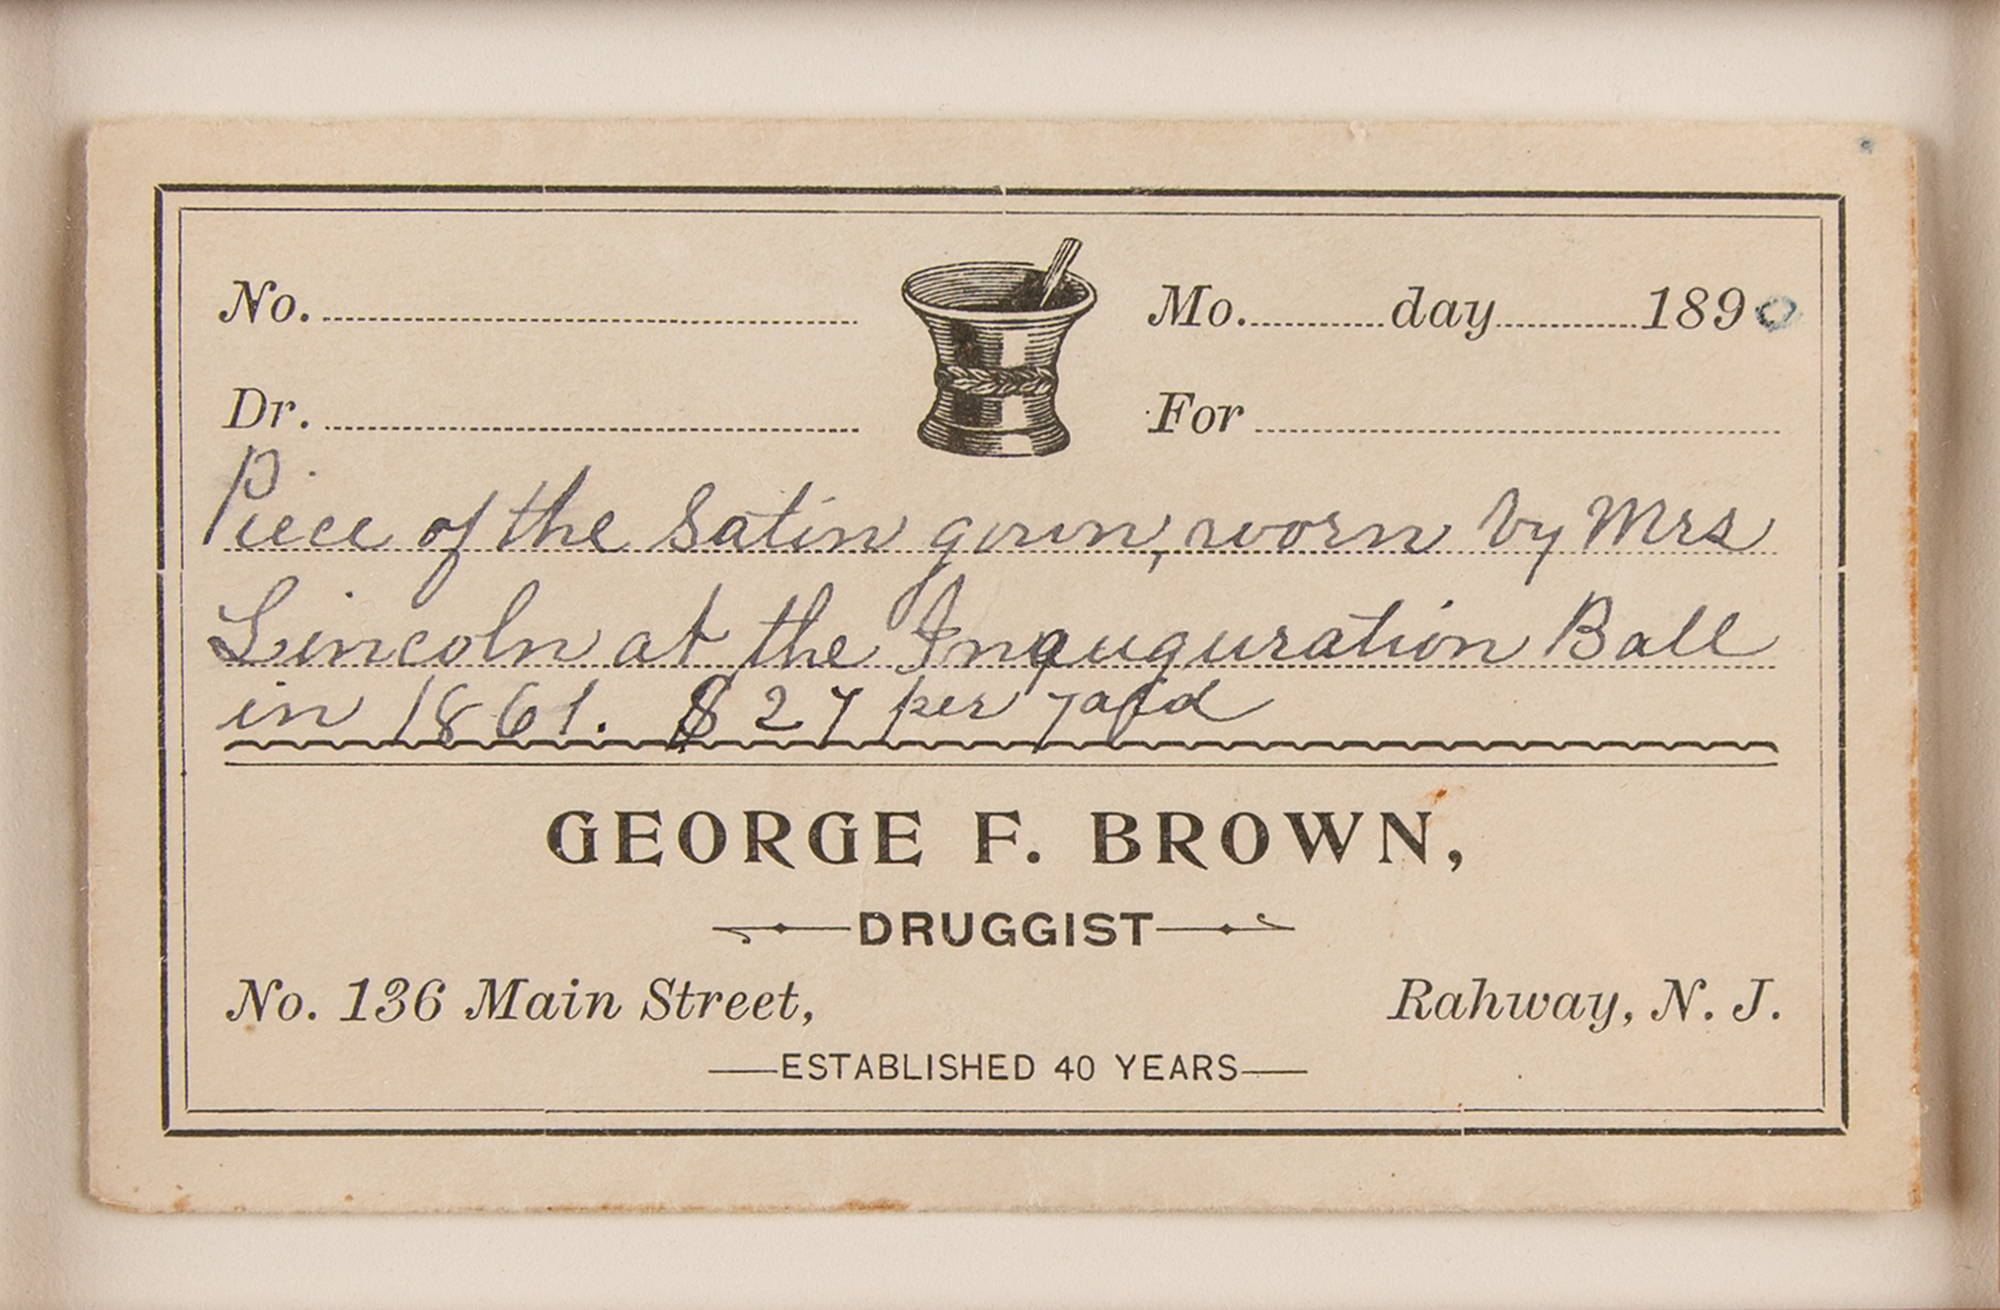 No. Mo. day 1890
Dr. For
Piece of the Satin gown, worn by Mrs
Lincoln at the Inauguration Ball
in 1861. $27 per yard
GEORGE F. BROWN,
DRUGGIST
No. 136 Main Street, Rahway, N. J.
ESTABLISHED 40 YEARS